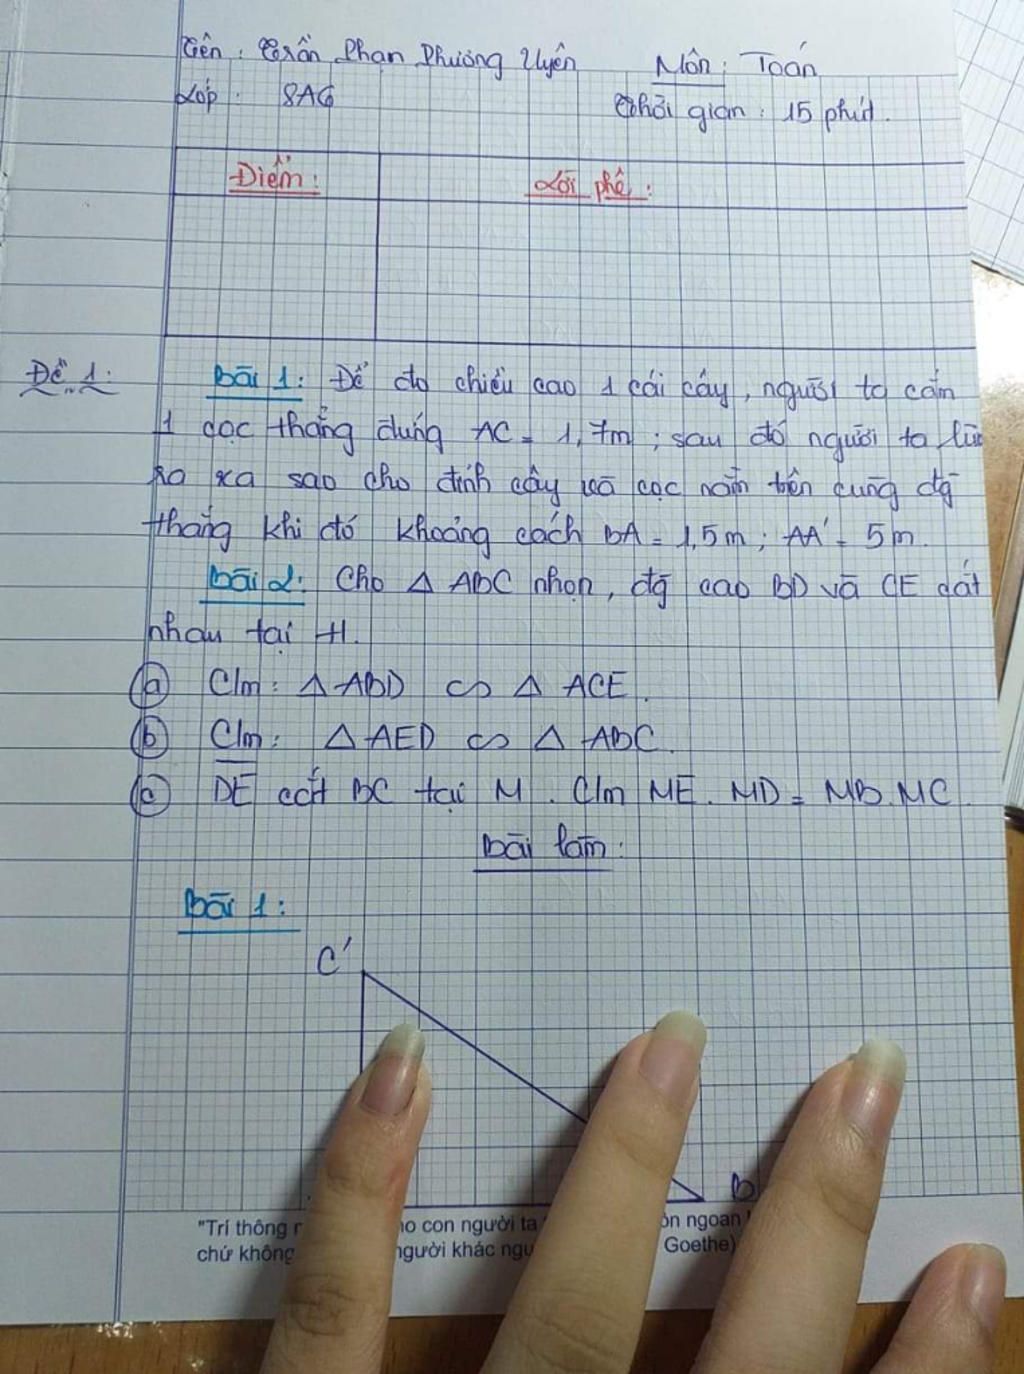 Tên : Trần Phan Phương Uyên Môn : Toán
Lớp : 8A6 Thời gian : 15 phút.
Điểm : Lời phê :
Đề 1 : Bài 1 : Để đo chiều cao 1 cái cây, người ta cắm
1 cọc thẳng đứng AC = 1,7m ; sau đó người ta lùi
ra xa sao cho đỉnh cây và cọc nằm trên cùng đg
thẳng khi đó khoảng cách BA = 1,5m ; AA' = 5m.
Bài 2 : Cho Δ ABC nhọn, đg cao BD và CE cắt
nhau tại H.
a C/m : Δ ABD ∽ Δ ACE.
b C/m : Δ AED ∽ Δ ABC.
c DE cắt BC tại M . C/m ME . MD = MB . MC.
Bài làm :
Bài 1 :
C'
B
"Trí thông ho con người ta ôn ngoan
chứ không người khác ngu Goethe)